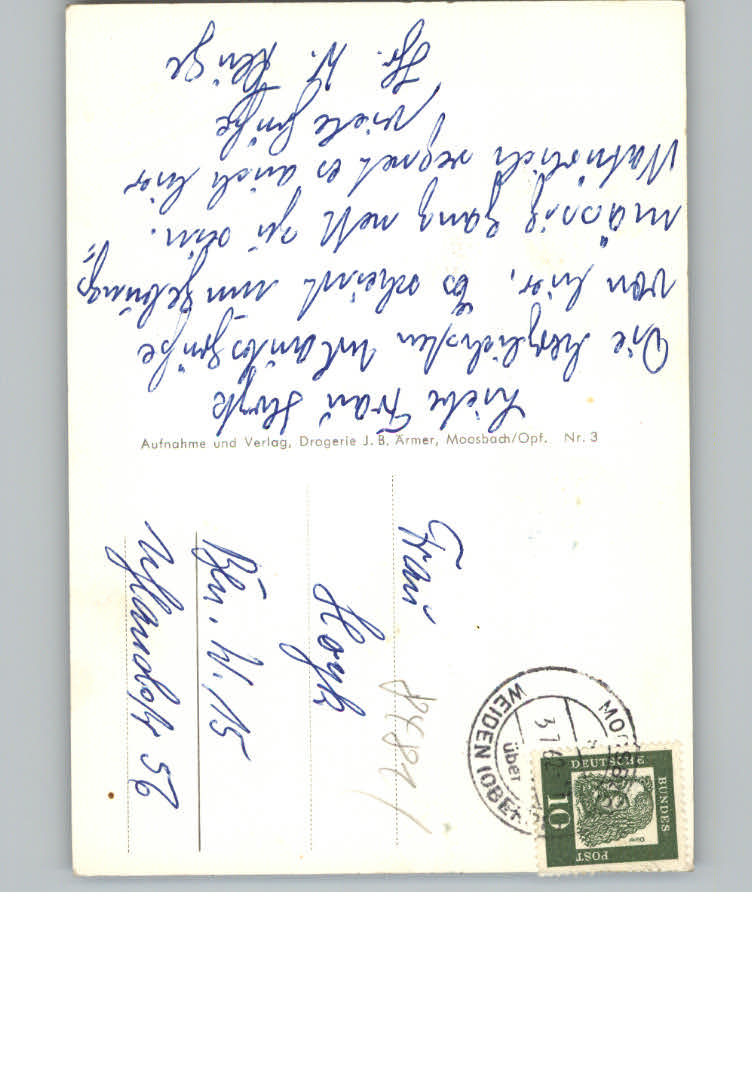 Liebe Frau Hoyk
Die herzlichsten Urlaubsgrüße
von hier, Es scheint umgebungs-
mässig ganz nett zu sein.
Natürlich regnet es auch hier
Viele Grüße
Fr. W. Kluge
Aufnahme und Verlag, Drogerie J. B. Ärmer, Moosbach/Opf. Nr. 3
Frau
Hoyk
Bln. W. 15
Uhlandstr 52
8481
über
WEIDEN (OBERPF
3.7.62
DEUTSCHE
BUNDES
POST
10
Dürer